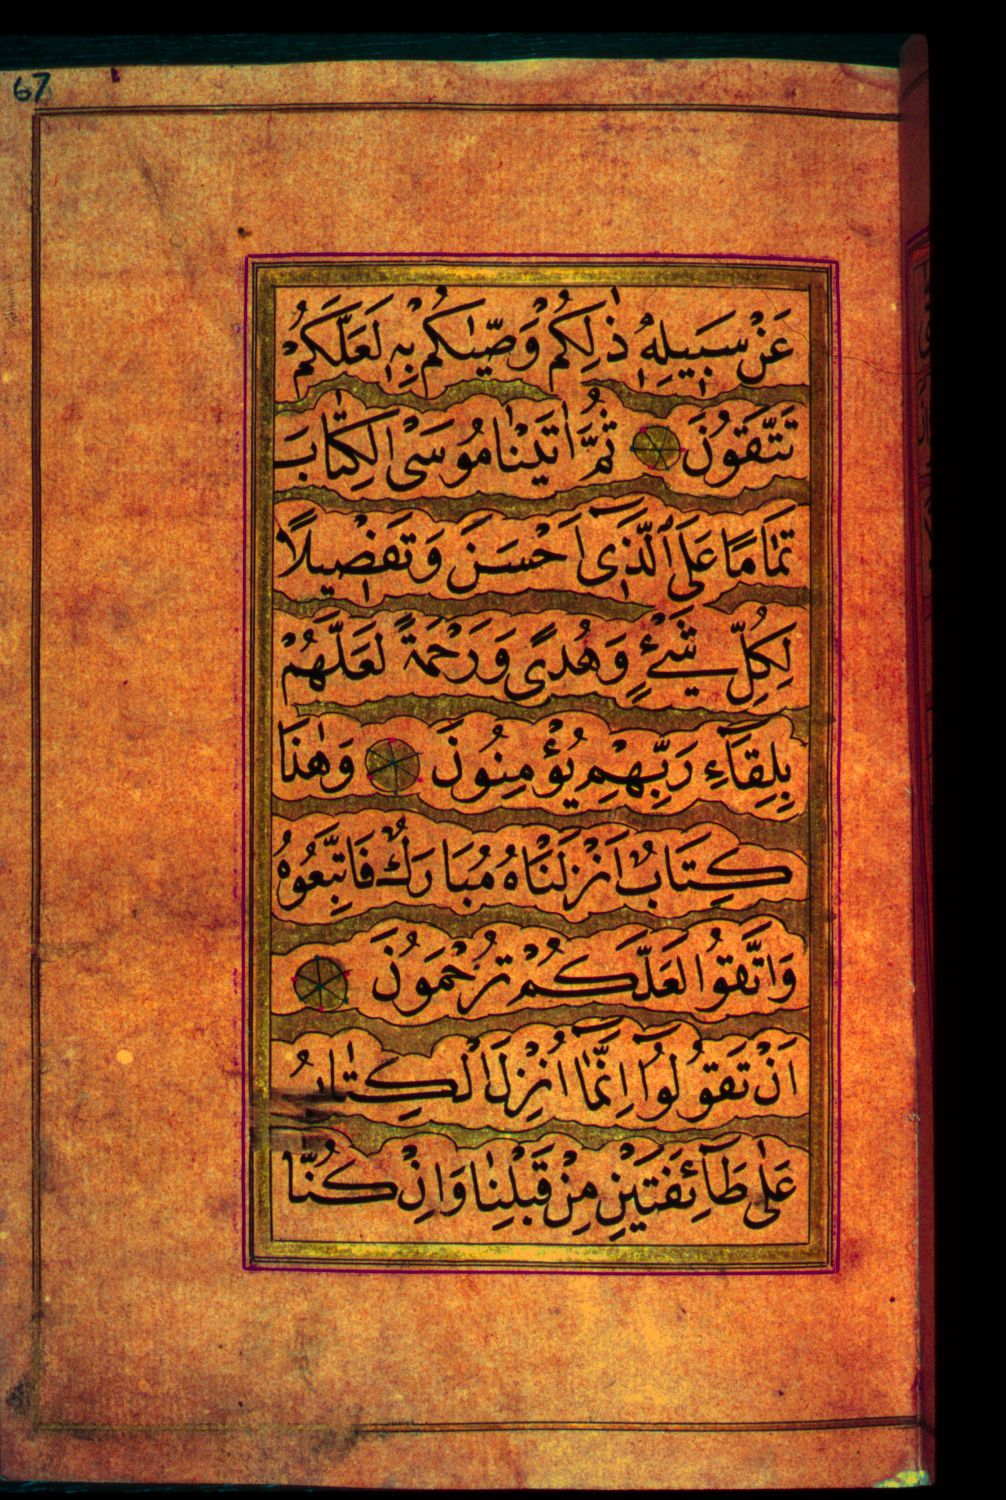 67
عَنْ سَبِيلِهٖ ذٰلِكُمْ وَصّٰيكُمْ بِهٖ لَعَلَّكُمْ
تَتَّقُونَ ثُمَّ اٰتَيْنَا مُوسَى الْكِتَابَ
تَمَامًا عَلَى الَّذٖٓى اَحْسَنَ وَتَفْصٖيلًا
لِكُلِّ شَىْءٍ وَهُدًى وَرَحْمَةً لَعَلَّهُمْ
بِلِقَٓاءِ رَبِّهِمْ يُؤْمِنُونَ وَهٰذَا
كِتَابٌ اَنْزَلْنَاهُ مُبَارَكٌ فَاتَّبِعُوهُ
وَاتَّقُوا لَعَلَّكُمْ تُرْحَمُونَ
اَنْ تَقُولُٓوا اِنَّمَٓا اُنْزِلَ الْكِتَابُ
عَلٰى طَٓائِفَتَيْنِ مِنْ قَبْلِنَا وَاِنْ كُنَّا